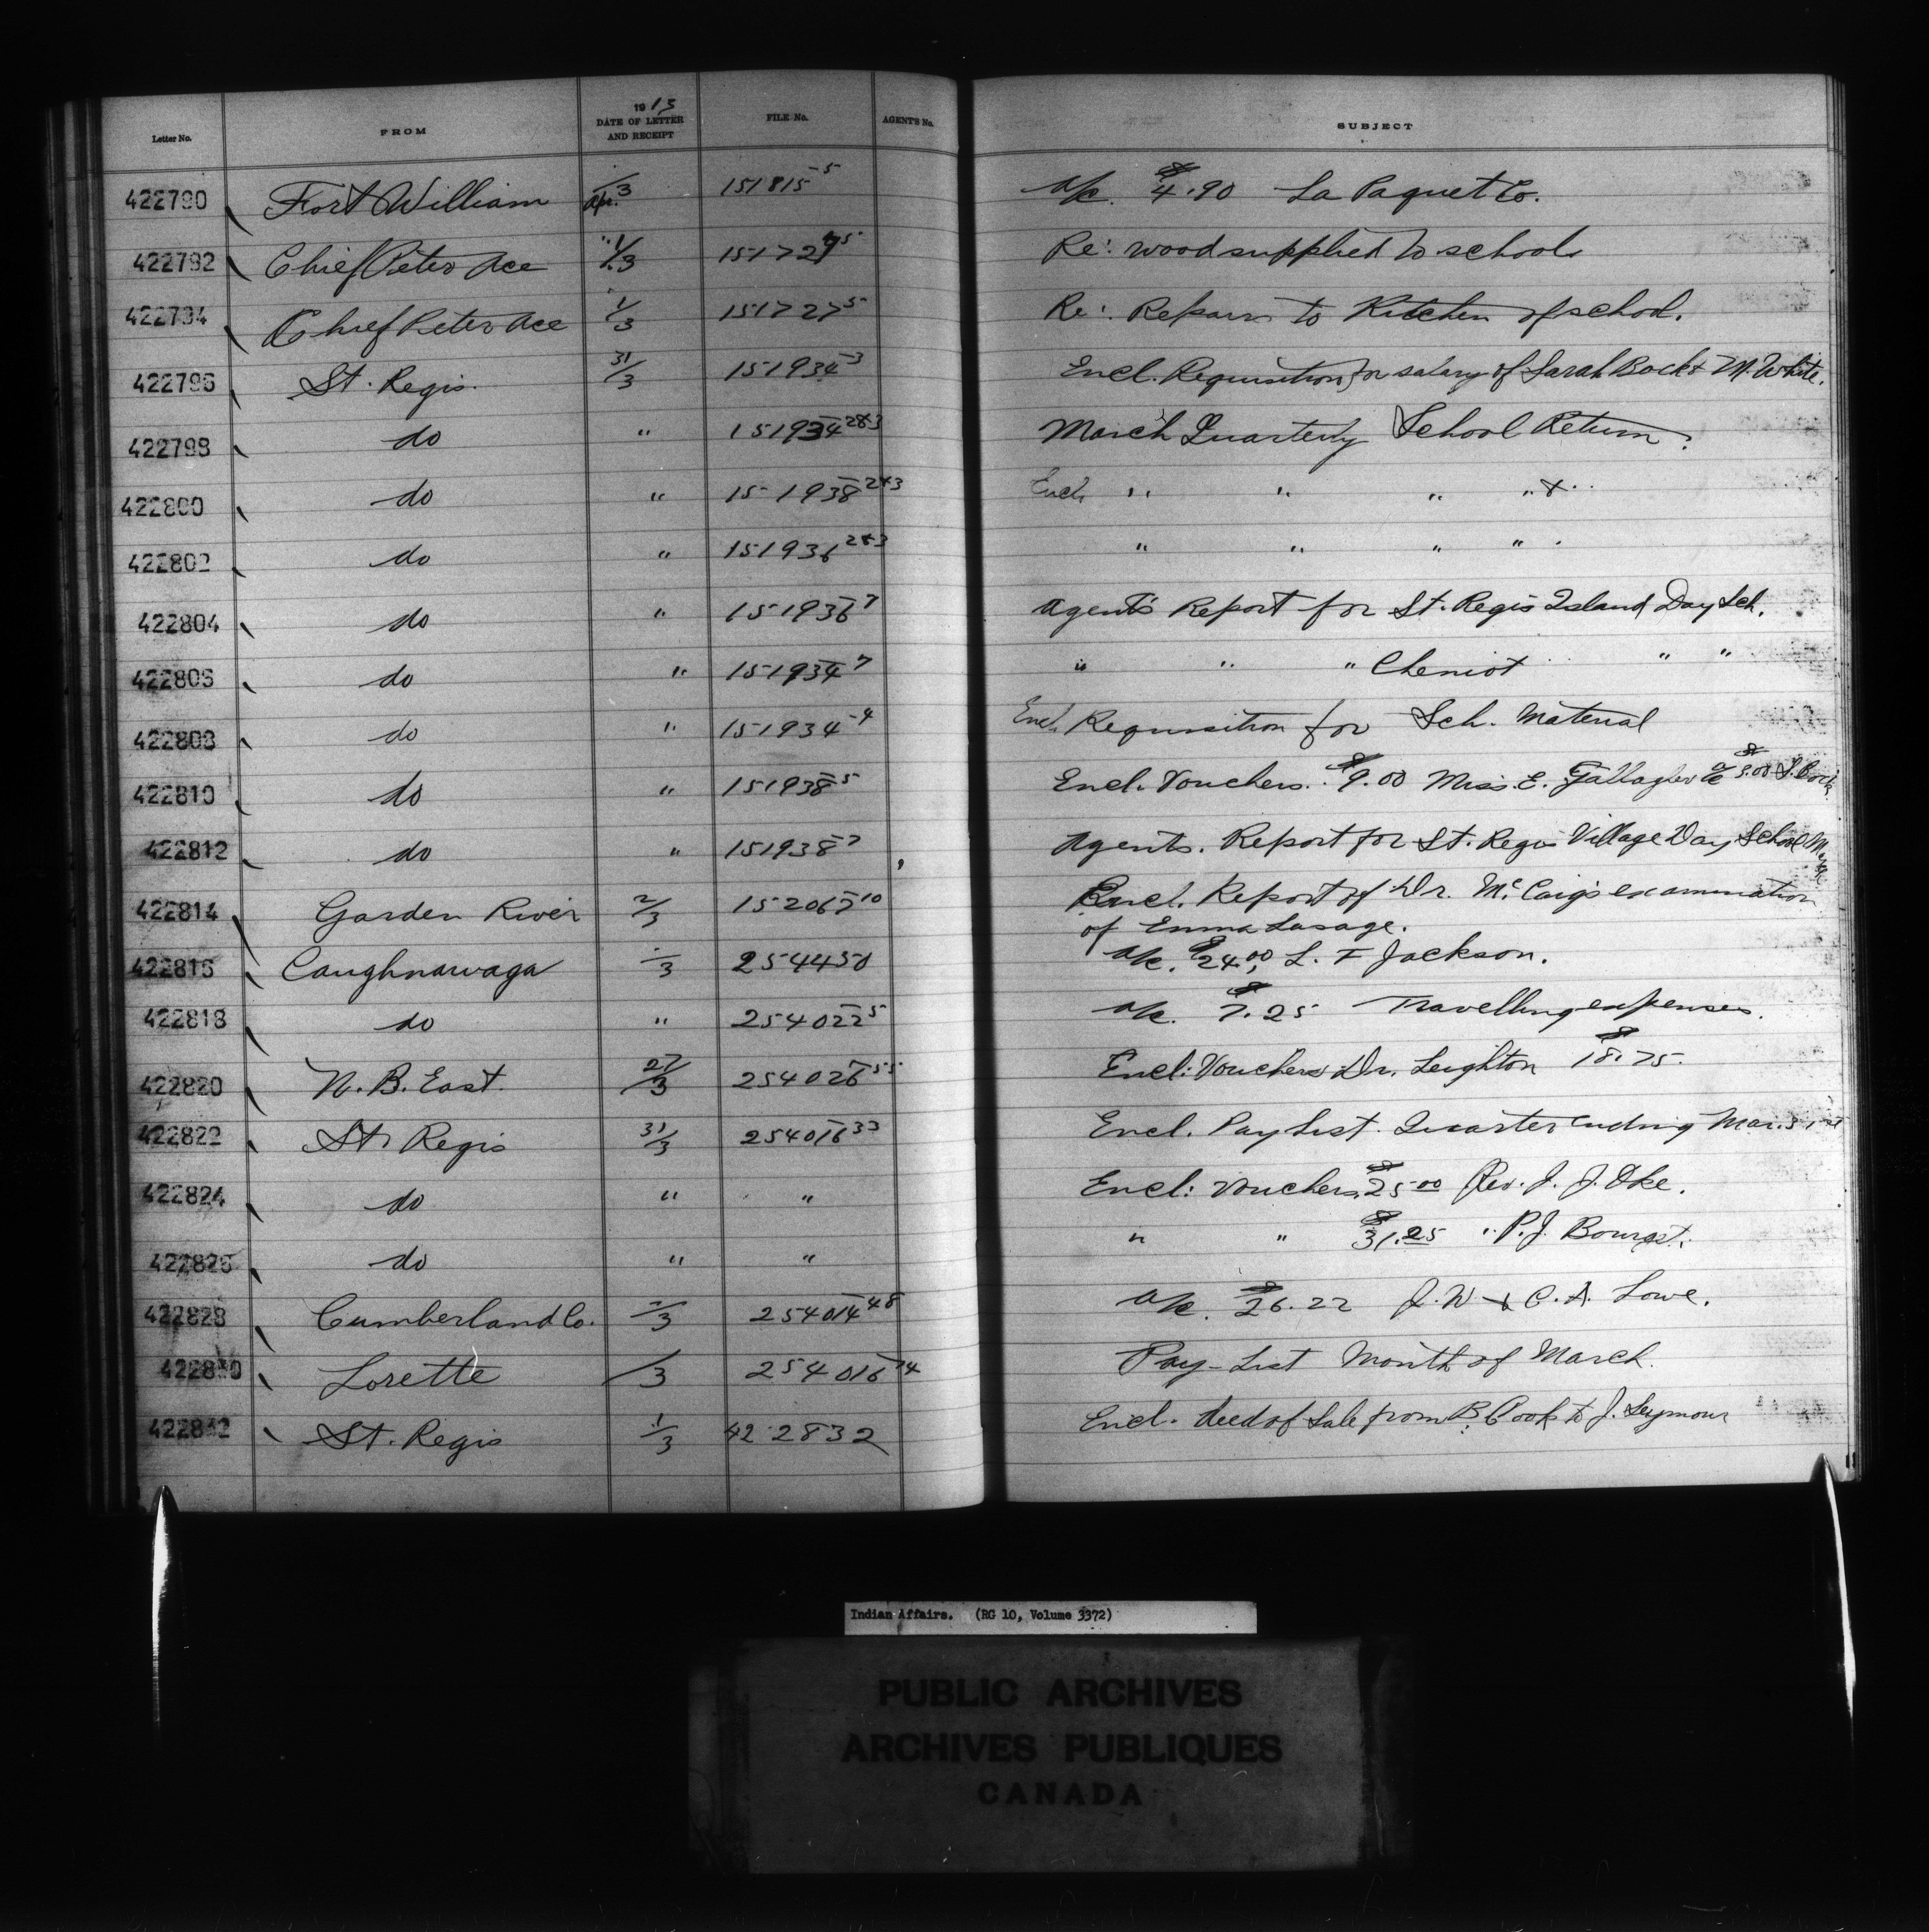 Letter No. FROM 1913 DATE OF LETTER AND RECEIPT FILE No. AGENT'S No. SUBJECT
422790 Fort William Apr. 3 151815-5 a/c. $4.90 La Paquet Co.
422792 Chief Peter Ace 1/3 151727-5 Re: wood supplied to school
422794 Chief Peter Ace 1/3 151727-5 Re: Repairs to Kitchen of school.
422796 St. Regis. 31/3 151934-3 Encl. Requisition for salary of Sarah Back & M. White.
422798 do " 151934-2&3 March Quarterly School Return.
422800 do " 151938-2&3 Encl. " " " " &
422802 do " 151936-2&3 " " " "
422804 do " 151936-7 Agent's Report for St. Regis Island Day Sch.
422806 do " 151934-7 " " " Cheniot " "
422808 do " 151934-4 Encl. Requisition for Sch. Material
422810 do " 151938-5 Encl. Vouchers. $9.00 Miss. E. Gallagher a/c $5.00 S. Back
422812 do " 151938-7 Agents. Report for St. Regis Village Day School
422814 Garden River 2/3 152067-10 Encl. Report of Dr. McCaig's examination
of Emma Lasage.
422816 Caughnawaga /3 254450 a/c. $24.00 L. F Jackson.
422818 do " 254022-5 a/c. $7.25 Travelling expenses.
422820 N. B. East. 27/3 254026-55 Encl: Vouchers Dr. Leighton $18.75.
422822 St. Regis 31/3 254016-33 Encl. Pay List. Quarter ending Mar. 31st
422824 do " " Encl: Vouchers $25.00 Rev. J. J. Oke.
422826 do " " " " $31.25 " P. J. Bourget.
422828 Cumberland Co. /3 254014-48 a/c. $26.22 J. W & C. A. Lowe.
422830 Lorette /3 254016-14 Pay-List Month of March.
422832 St. Regis 1/3 422832 Encl. deed of Sale from B. Cook to J. Seymour
Indian Affairs. (RG 10, Volume 3372)
PUBLIC ARCHIVES
ARCHIVES PUBLIQUES
CANADA